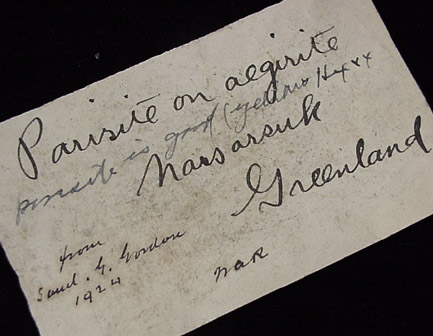 Parisite on aegirite
parisite is good (yellow
Narsarsuk
Greenland
from
Saml. G. Gordon
1924